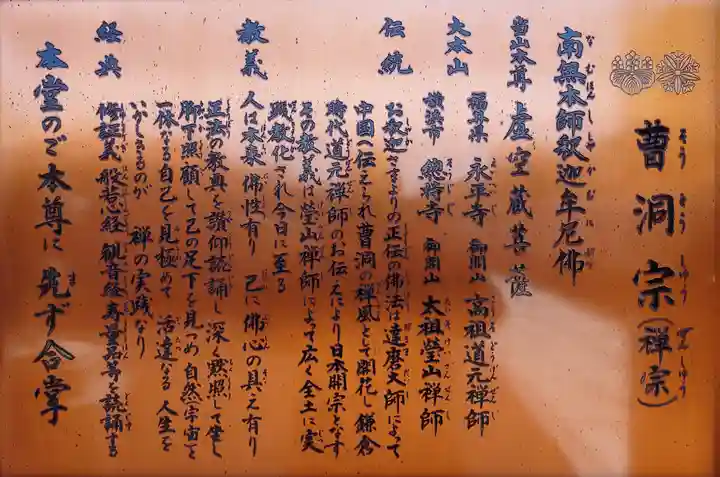 曹洞宗(禅宗)
そうとうしゅう ぜんしゅう
南無本師釈迦牟尼佛
なむほんししゃかむにぶつ
当山本尊 虚空蔵菩薩
大本山 福井県 永平寺 御開山 高祖道元禅師
横浜市 總持寺 御開山 太祖瑩山禅師
伝統 お釈迦さまよりの正伝の佛法は達磨大師によって
中国へ伝えられ曹洞の禅風として開花し鎌倉
時代道元禅師のお伝えにより日本開宗となす
その教義は瑩山禅師によって広く全土に実
践教化され今日に至る
教義 人は本来佛性有り 己に佛心の具え有り
正法の教典を讃仰読誦し深く黙照して坐し
脚下照顧して己の足下を見つめ自然(宇宙)と
一体なる自己を見極めて 活達なる人生を
いかしきるのが 禅の実践なり
経典 修証義 般若心経 観音経 寿量品等を読誦する
本堂のご本尊に 先ず合掌